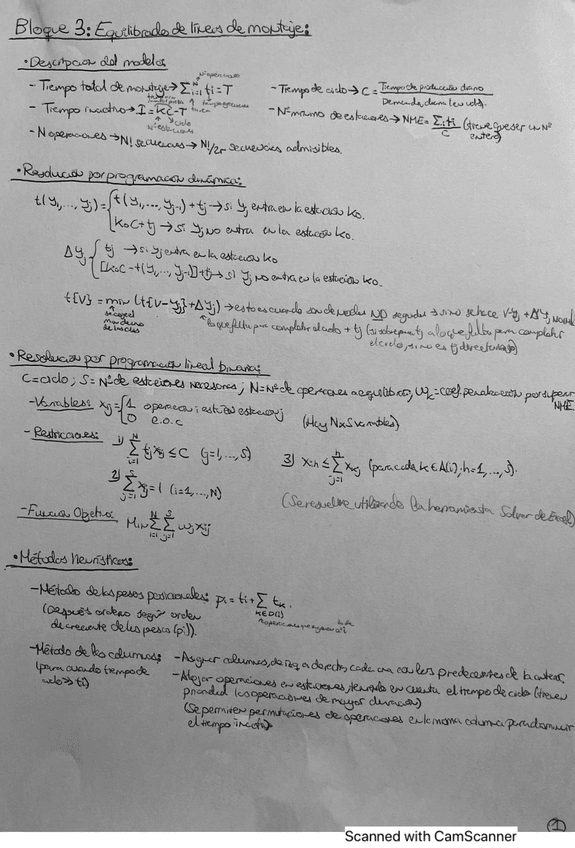 Bloque 3: Equilibrado de líneas de montaje:
• Descripción del modelo:
- Tiempo total de montaje → Σᵢ₌₁ᴺ tᵢ = T
nº operaciones
- Tiempo de ciclo → C = Tiempo de producción diario / Demanda diaria (en uds).
- Tiempo inactivo → I = KC - T
ciclo
Nº estaciones
- Nº mínimo de estaciones → NME = Σᵢ tᵢ / C (tiene que ser un Nº entero)
- N operaciones → N! secuencias → N!/2r secuencias admisibles.
• Resolución por programación dinámica:
t(y₁,..., yⱼ) = { t(y₁,..., yⱼ₋₁) + tⱼ → si yⱼ entra en la estación k₀.
k₀C + tⱼ → si yⱼ NO entra en la estación k₀.
Δyⱼ { tⱼ → si yⱼ entra en la estación k₀
[k₀C - t(y₁,..., yⱼ₋₁)] + tⱼ → si yⱼ NO entra en la estación k₀.
t{V} = min (t{V-yⱼ} + Δyⱼ) → esto es cuando son de verdes NO seguidas → si no se hace V-yⱼ + Δyⱼ
lo que falta para completar el ciclo + tⱼ (si sobrepasa tⱼ a lo que falta para completar
el ciclo, si no es tⱼ directamente)
• Resolución por programación lineal binaria:
C = ciclo; S = Nº de estaciones necesarias; N = Nº de operaciones a equilibrar; wⱼ = coef. penalización por superar NME
- Variables: xᵢⱼ = { 1 operación i está en estación j
0 e.o.c (Hay N×S variables)
- Restricciones: 1) Σᵢ₌₁ᴺ tᵢ xᵢⱼ ≤ C (j=1,...,S)
3) xᵢₕ ≤ Σⱼ₌₁ʰ xₖⱼ (para cada k ∈ A(i); h=1,...,S).
2) Σⱼ₌₁ˢ xᵢⱼ = 1 (i=1,...,N)
(Se resuelve utilizando la herramienta Solver de Excel)
- Función Objetivo Min Σᵢ₌₁ᴺ Σⱼ₌₁ˢ wⱼ xᵢⱼ
• Métodos Heurísticos:
- Método de los pesos posicionales: pᵢ = tᵢ + Σ tₖ.
k∈D(i)
(Después ordeno según orden
decreciente de los pesos (pᵢ)).
- Método de las columnas:
(para cuando tiempo de
ciclo >> tᵢ)
- Asignar columnas, de izq a derecha, cada una con los precedentes de la anterior,
- Alojar operaciones en estaciones, teniendo en cuenta el tiempo de ciclo (tienen
prioridad las operaciones de mayor duración)
(Se permiten permutaciones de operaciones en la misma columna para disminuir
el tiempo inactivo)
1
Scanned with CamScanner